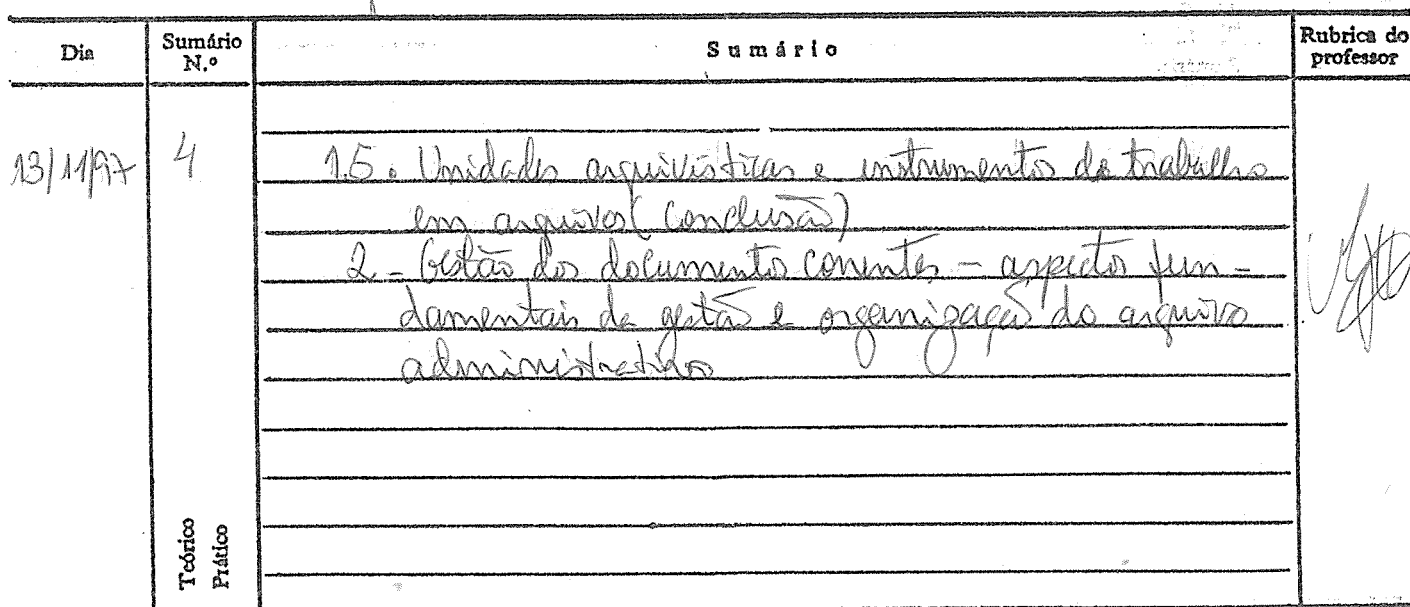 Dia
Sumário N.º
Sumário
Rubrica do professor
13/11/97
4
1.5. Unidades arquivísticas e instrumentos de trabalho
em arquivos (conclusão)
2 - Gestão dos documentos correntes - aspectos fun-
damentais da gestão e organização do arquivo
administrativo
Teórico
Prático